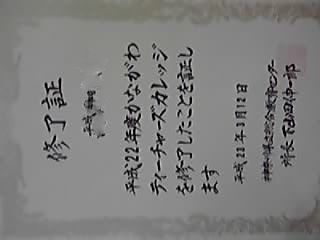 修了証
平成22年度かながわ
ティーチャーズカレッジ
を修了したことを証し
ます
平成23年3月12日
神奈川県立総合教育センター
所長 下山田伸一郎